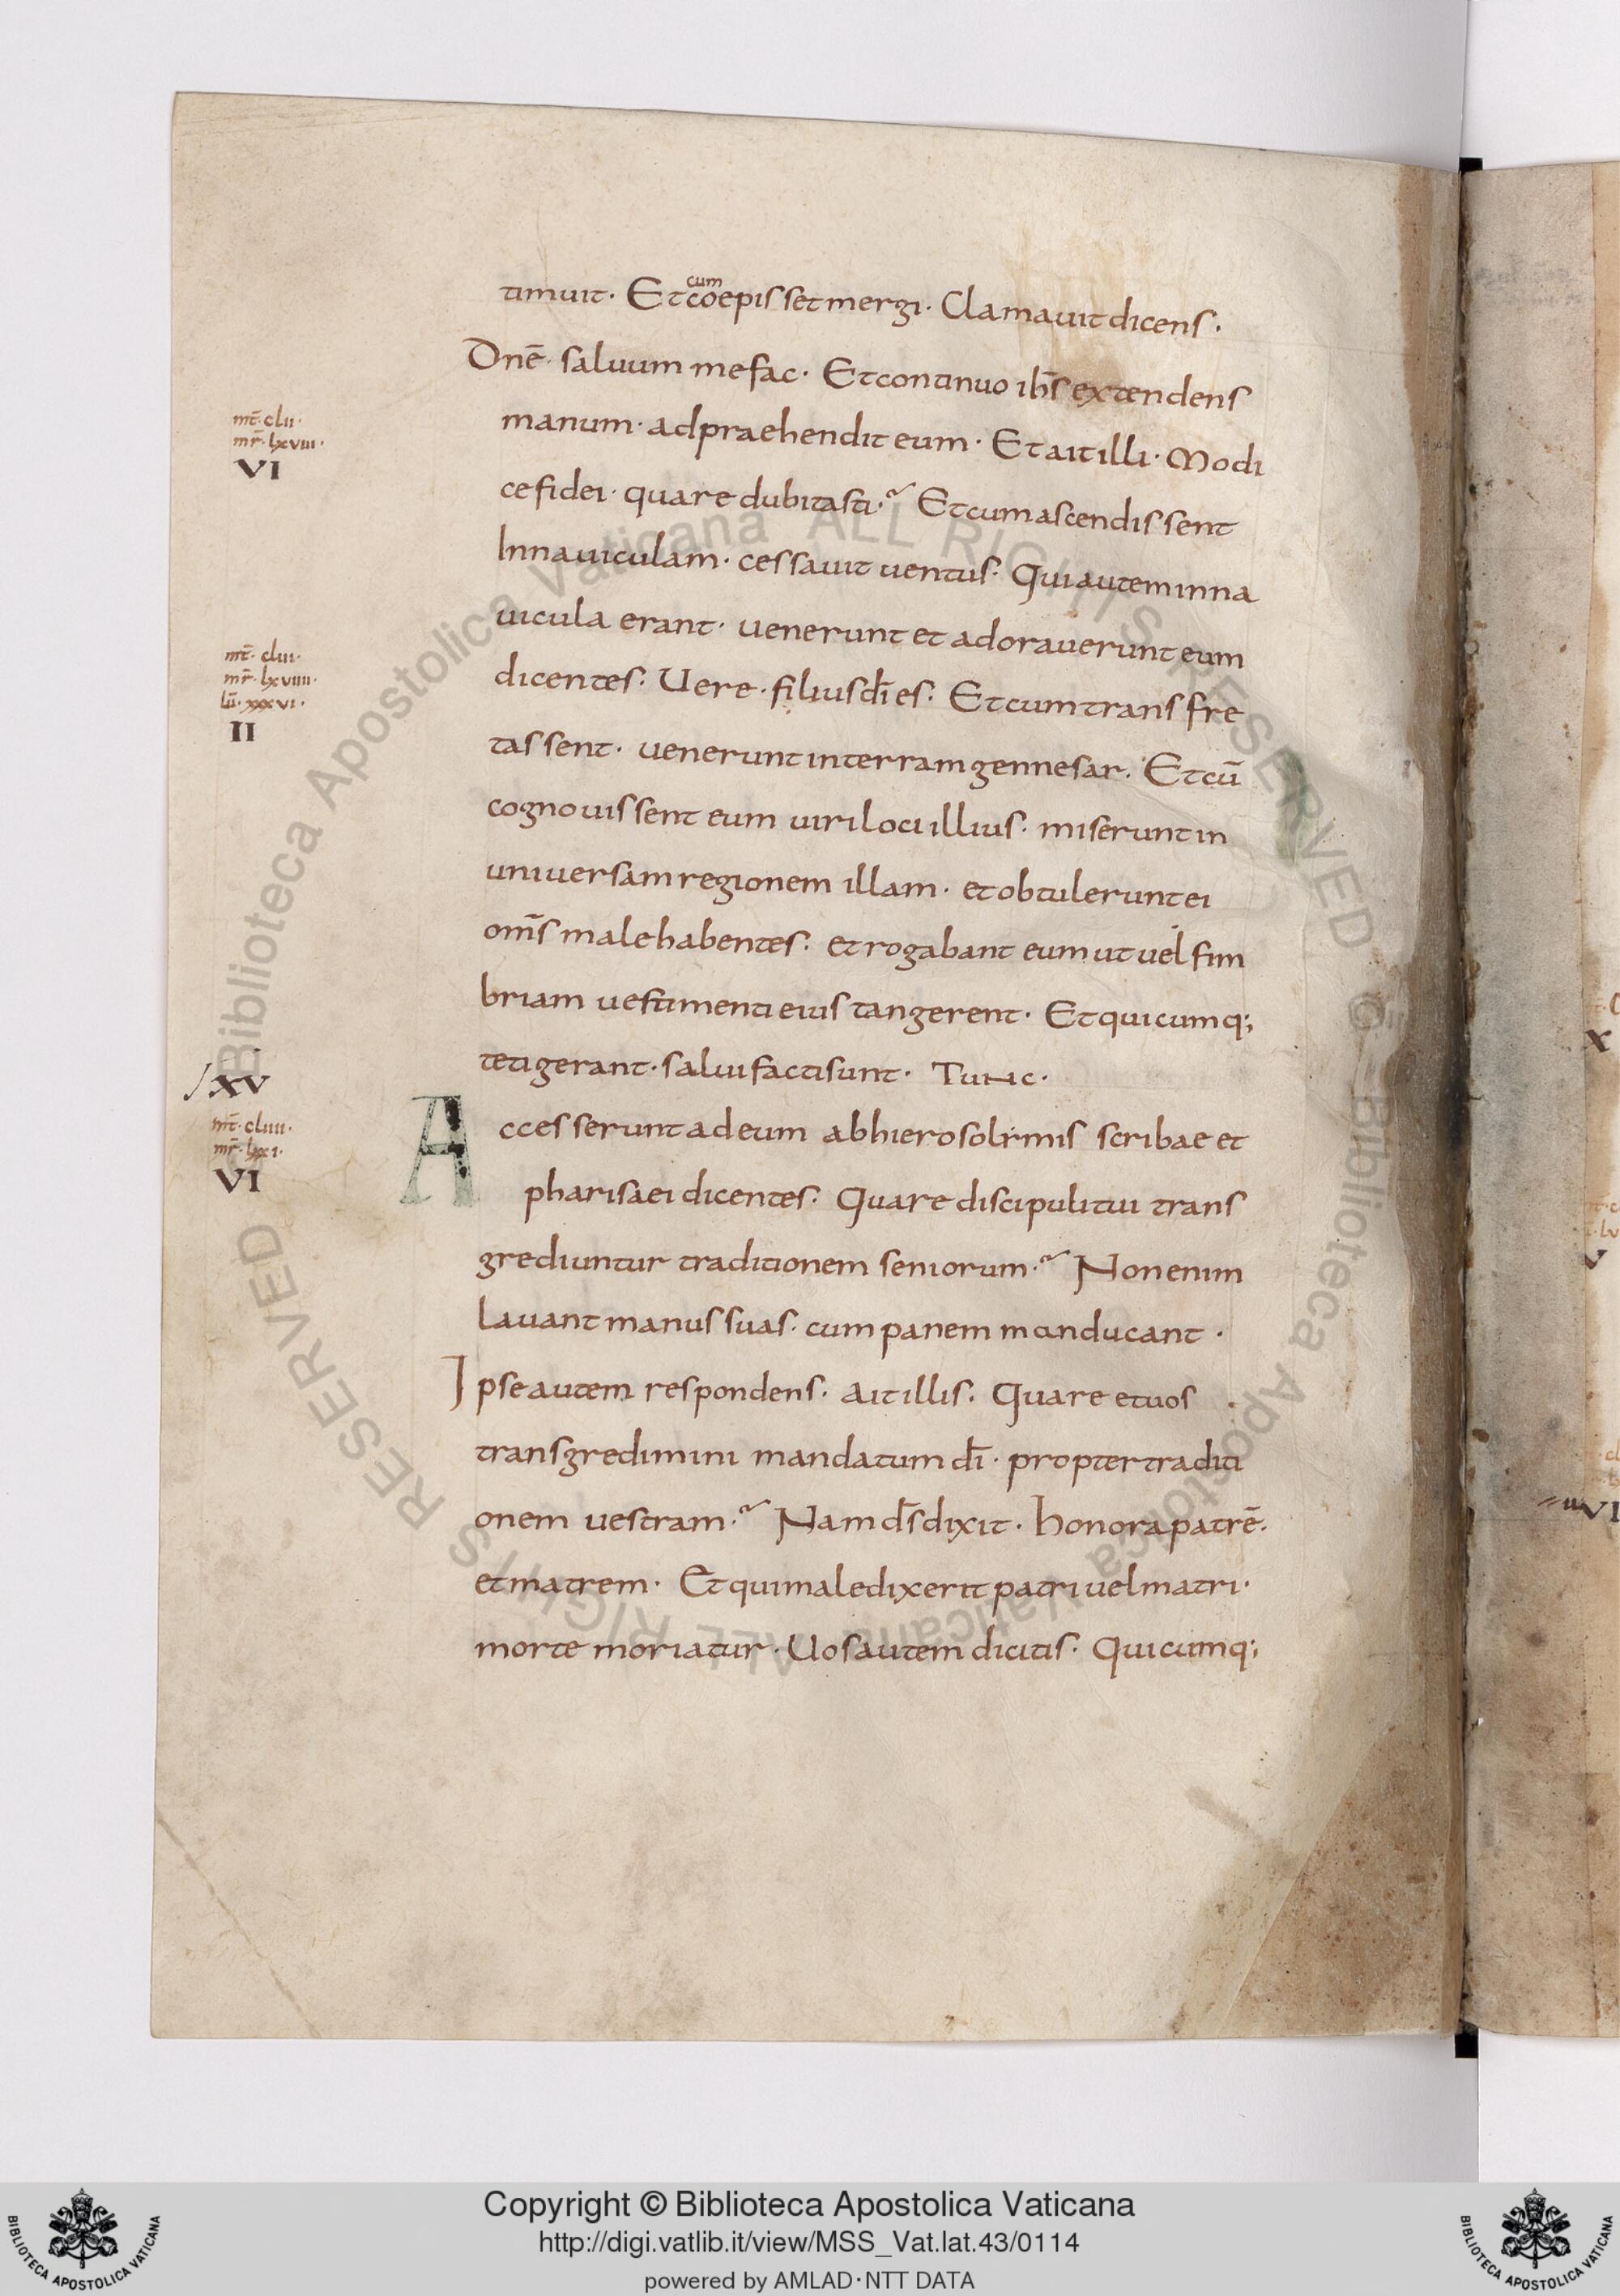 timuit· Et cum coepisset mergi· Clamauit dicens·
Dnē· saluum me fac· Et continuo ih̄s extendens
manum· adpraehendit eum· Et ait illi· Modi
ce fidei· quare dubitasti·? Et cum ascendissent
In nauiculam· cessauit uentus· Qui autem in na
uicula erant· uenerunt et adorauerunt eum
dicentes· Uere· filius dī es· Et cum transfre
tassent· uenerunt in terram gennesar· Et cū
cognouissent eum uiri loci illius· miserunt in
uniuersam regionem illam· et obtulerunt ei
om̄s male habentes· et rogabant eum ut uel fim
briam uestimenti eius tangerent· Et quicumq;
tetigerant· salui facti sunt· Tunc·
Accesserunt ad eum ab hierosolymis scribae et
pharisaei dicentes· Quare discipuli tui trans
grediuntur traditionem seniorum·? Non enim
lauant manus suas· cum panem manducant·
Ipse autem respondens· ait illis· Quare et uos
transgredimini mandatum dī· propter traditi
onem uestram·? Nam d̄s dixit· honora patrē·
et matrem· Et qui maledixerit patri uel matri·
morte moriatur· Uos autem dicitis· Quicumq;
mt̄· clii·
mr̄· lxviii·
VI
mt̄· cliii·
mr̄· lxviiii·
lū· xxxvi·
II
XV
mt̄· cliiii·
mr̄· lxxi·
VI
X
V
VI
Biblioteca Apostolica Vaticana ALL RIGHTS RESERVED © Biblioteca Apostolica Vaticana ALL RIGHTS RESERVED
Copyright © Biblioteca Apostolica Vaticana
http://digi.vatlib.it/view/MSS_Vat.lat.43/0114
powered by AMLAD·NTT DATA
BIBLIOTECA APOSTOLICA VATICANA
BIBLIOTECA APOSTOLICA VATICANA